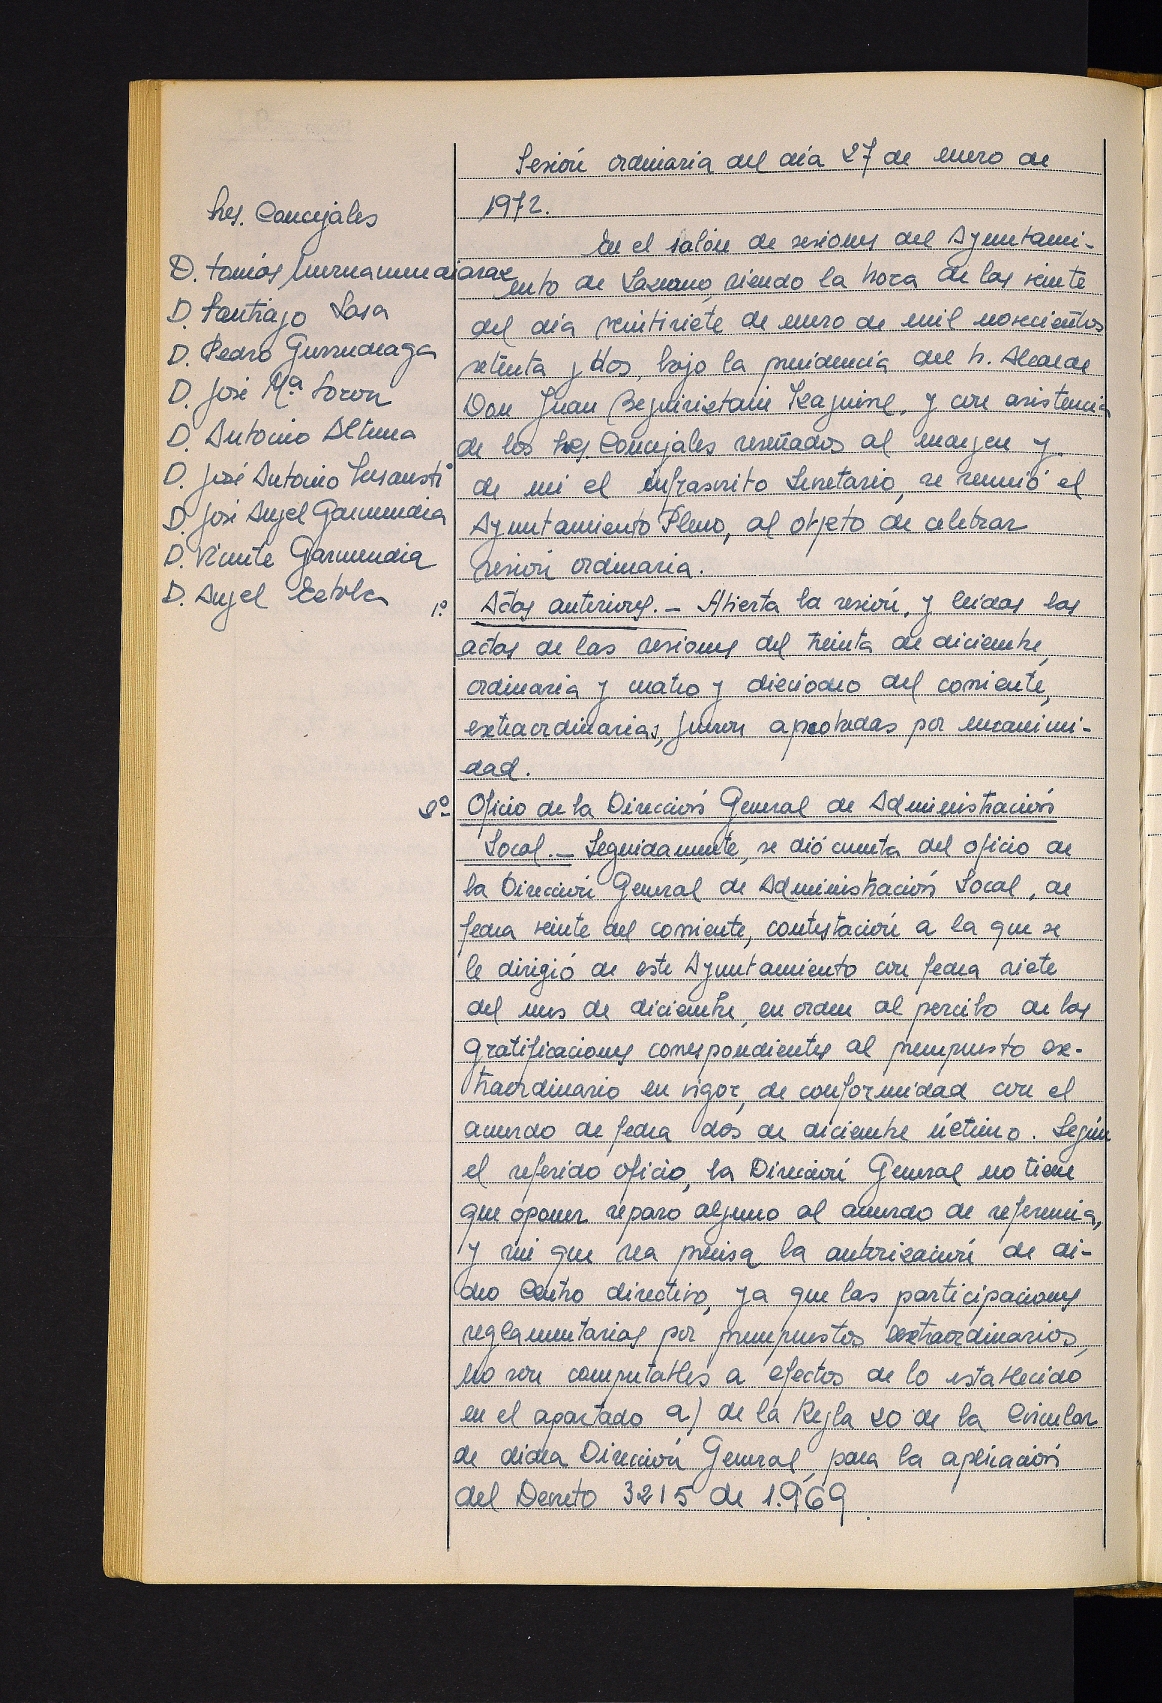 Sesión ordinaria del día 27 de enero de
1972.
Sres. Concejales
D. Tomás
D. Santiago Sasa
D. Pedro Gurruchaga
D. José Mª Soron
D. Antonio Altuna
D. José Antonio Insausti
D. José Angel Garmendia
D. Vicente Garmendia
D. Angel
En el salón de sesiones del Ayuntami-
ento de Lazcano, siendo la hora de las veinte
del día veintisiete de enero de mil novecientos
setenta y dos, bajo la presidencia del Sr. Alcalde
Don Juan Beguiristain Izaguirre, y con asistencia
de los Sres Concejales reseñados al margen y
de mi el infrascrito Secretario, se reunió el
Ayuntamiento Pleno, al objeto de celebrar
sesión ordinaria.
1º Actas anteriores.- Abierta la sesión, y leidas las
actas de las sesiones del treinta de diciembre,
ordinaria y cuatro y dieciocho del corriente,
extraordinarias, fueron aprobadas por unanimi-
dad.
2º Oficio de la Dirección General de Administración
Local.- Seguidamente, se dió cuenta del oficio de
la Dirección General de Administración Local, de
fecha veinte del corriente, contestación a la que se
le dirigió de este Ayuntamiento con fecha siete
del mes de diciembre, en orden al percibo de las
gratificaciones correspondientes al presupuesto ex-
traordinario en vigor, de conformidad con el
acuerdo de fecha dos de diciembre último. Según
el referido oficio, la Dirección General no tiene
que oponer reparo alguno al acuerdo de referencia,
y ni que sea precisa la autorización de di-
cho Centro directivo, ya que las participaciones
reglamentarias por presupuestos extraordinarios,
no son computables a efectos de lo establecido
en el apartado a) de la Regla 20 de la Circular
de dicha Dirección General, para la aplicación
del Decreto 3215 de 1.969.